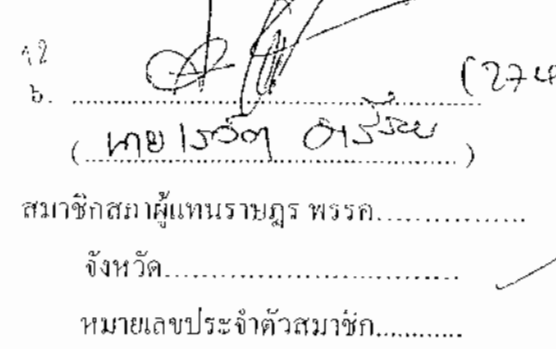 12
๖. ........................................ (274
( นาย ........................................ )
สมาชิกสภาผู้แทนราษฎร พรรค................
จังหวัด................................
หมายเลขประจำตัวสมาชิก...........